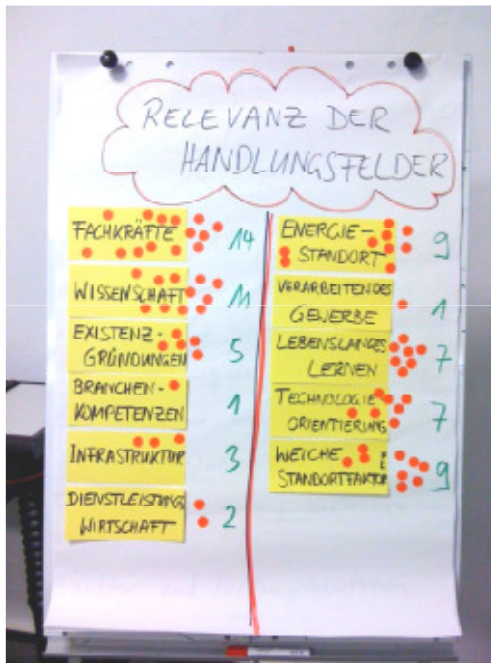 RELEVANZ DER
HANDLUNGSFELDER
FACHKRÄFTE 14
WISSENSCHAFT 11
EXISTENZ-
GRÜNDUNGEN 5
BRANCHEN-
KOMPETENZEN 1
INFRASTRUKTUR 3
DIENSTLEISTUNGS
WIRTSCHAFT 2
ENERGIE-
STANDORT 9
VERARBEITENDES
GEWERBE 1
LEBENSLANGES
LERNEN 7
TECHNOLOGIE
ORIENTIERUNG 7
WEICHE
STANDORTFAKTOREN 9